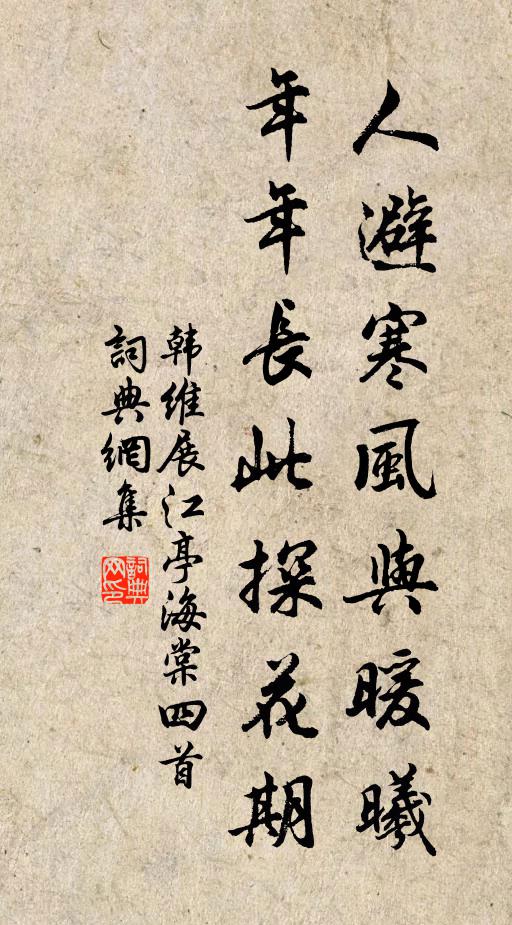 人避寒風與暖曦
年年長此探花期
韩維展江亭海棠四首
詞典網集
詞典網印